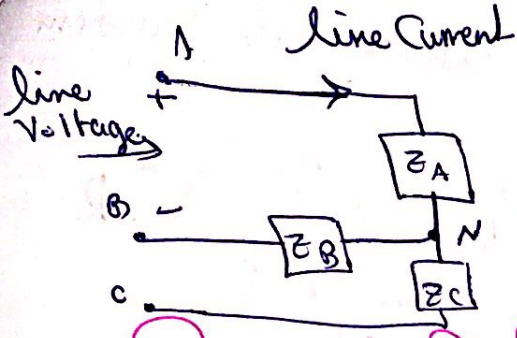 A
line Current
line
Voltage
+
Z A
B -
Z B
N
Z C
C